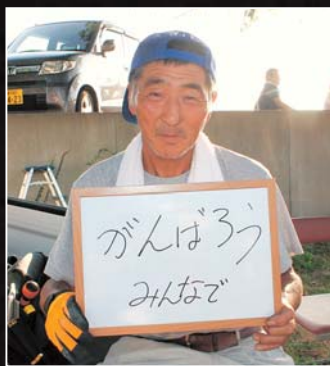 がんばろう
みんなで